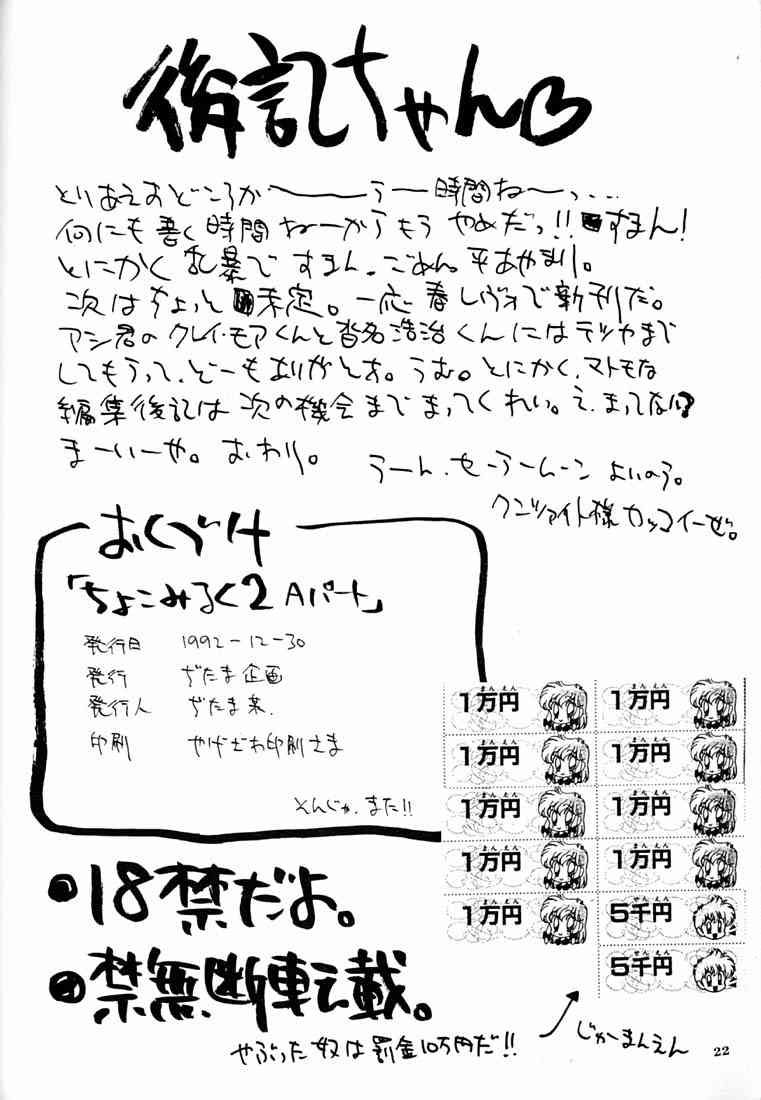 後記ちゃん♡
とりあえおどころか〜〜〜う〜時間ね〜っ…
何にも書く時間ねーからもうやめだっ!!すまん!
とにかく乱暴ですまん.ごめん。平あやまり。
次はちょっと未定。一応春レヴォで新刊だ。
アシ君のクレイ・モアくんと沓名浩治くんにはテツヤまで
してもらって、どーもありがとお。うむ。とにかく、マトモな
編集後記は次の機会までまってくれい。え、まってない?
まーいーや。おわり。
うーん、セーラームーンよいのう。
クンツァイト様カッコイーぜ。
おくづけ
「ちょこみるく2 Aパート」
発行日 1992-12-30
発行 ぢたま企画
発行人 ぢたま某.
印刷 やげざわ印刷さま
そんじゃ、また!!
1万円 1万円
1万円 1万円
1万円 1万円
1万円 1万円
1万円 5千円
5千円
18禁だよ。
禁無断転載。
じゅーまんえん
やぶった奴は罰金10万円だ!!
22